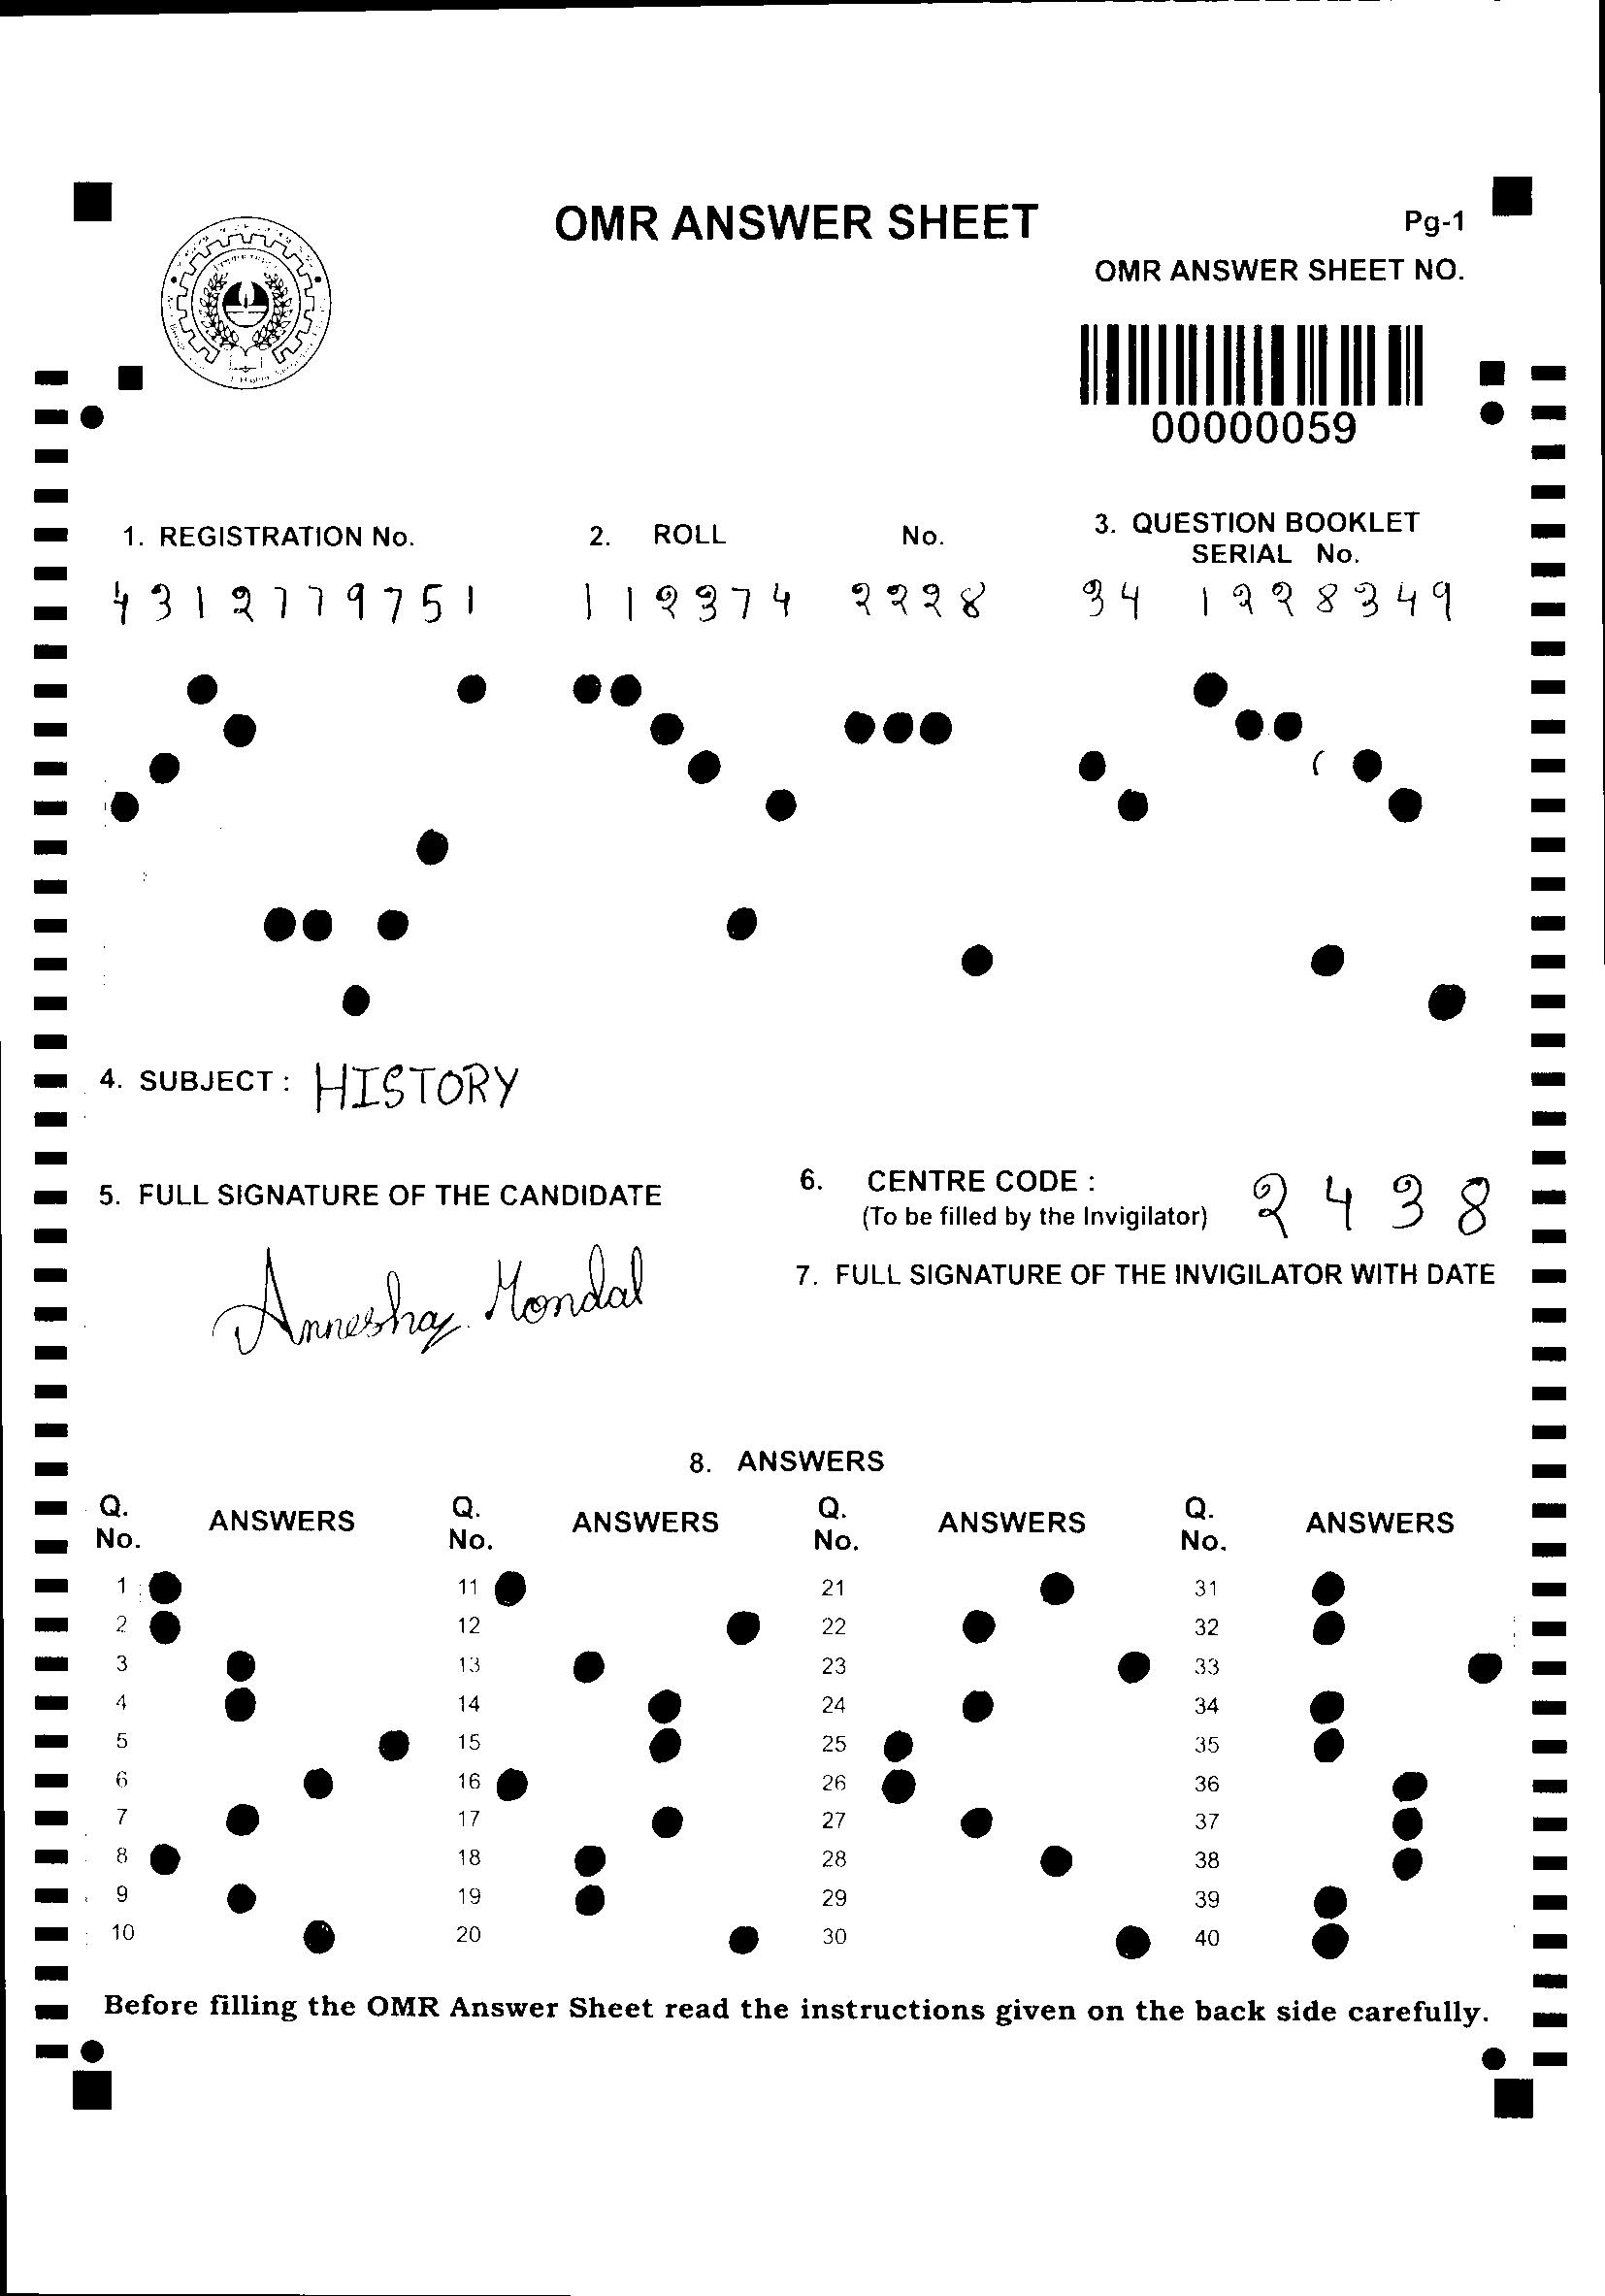 OMR ANSWER SHEET
Pg-1
OMR ANSWER SHEET NO.
00000059
1. REGISTRATION No.
2. ROLL No.
3. QUESTION BOOKLET
SERIAL No.
4312779751
112374 2228
34 1228349
4. SUBJECT : HISTORY
5. FULL SIGNATURE OF THE CANDIDATE
Annesha Mondal
6. CENTRE CODE : 2438
(To be filled by the Invigilator)
7. FULL SIGNATURE OF THE INVIGILATOR WITH DATE
8. ANSWERS
Q. No. ANSWERS Q. No. ANSWERS Q. No. ANSWERS Q. No. ANSWERS
1 11 21 31
2 12 22 32
3 13 23 33
4 14 24 34
5 15 25 35
6 16 26 36
7 17 27 37
8 18 28 38
9 19 29 39
10 20 30 40
Before filling the OMR Answer Sheet read the instructions given on the back side carefully.